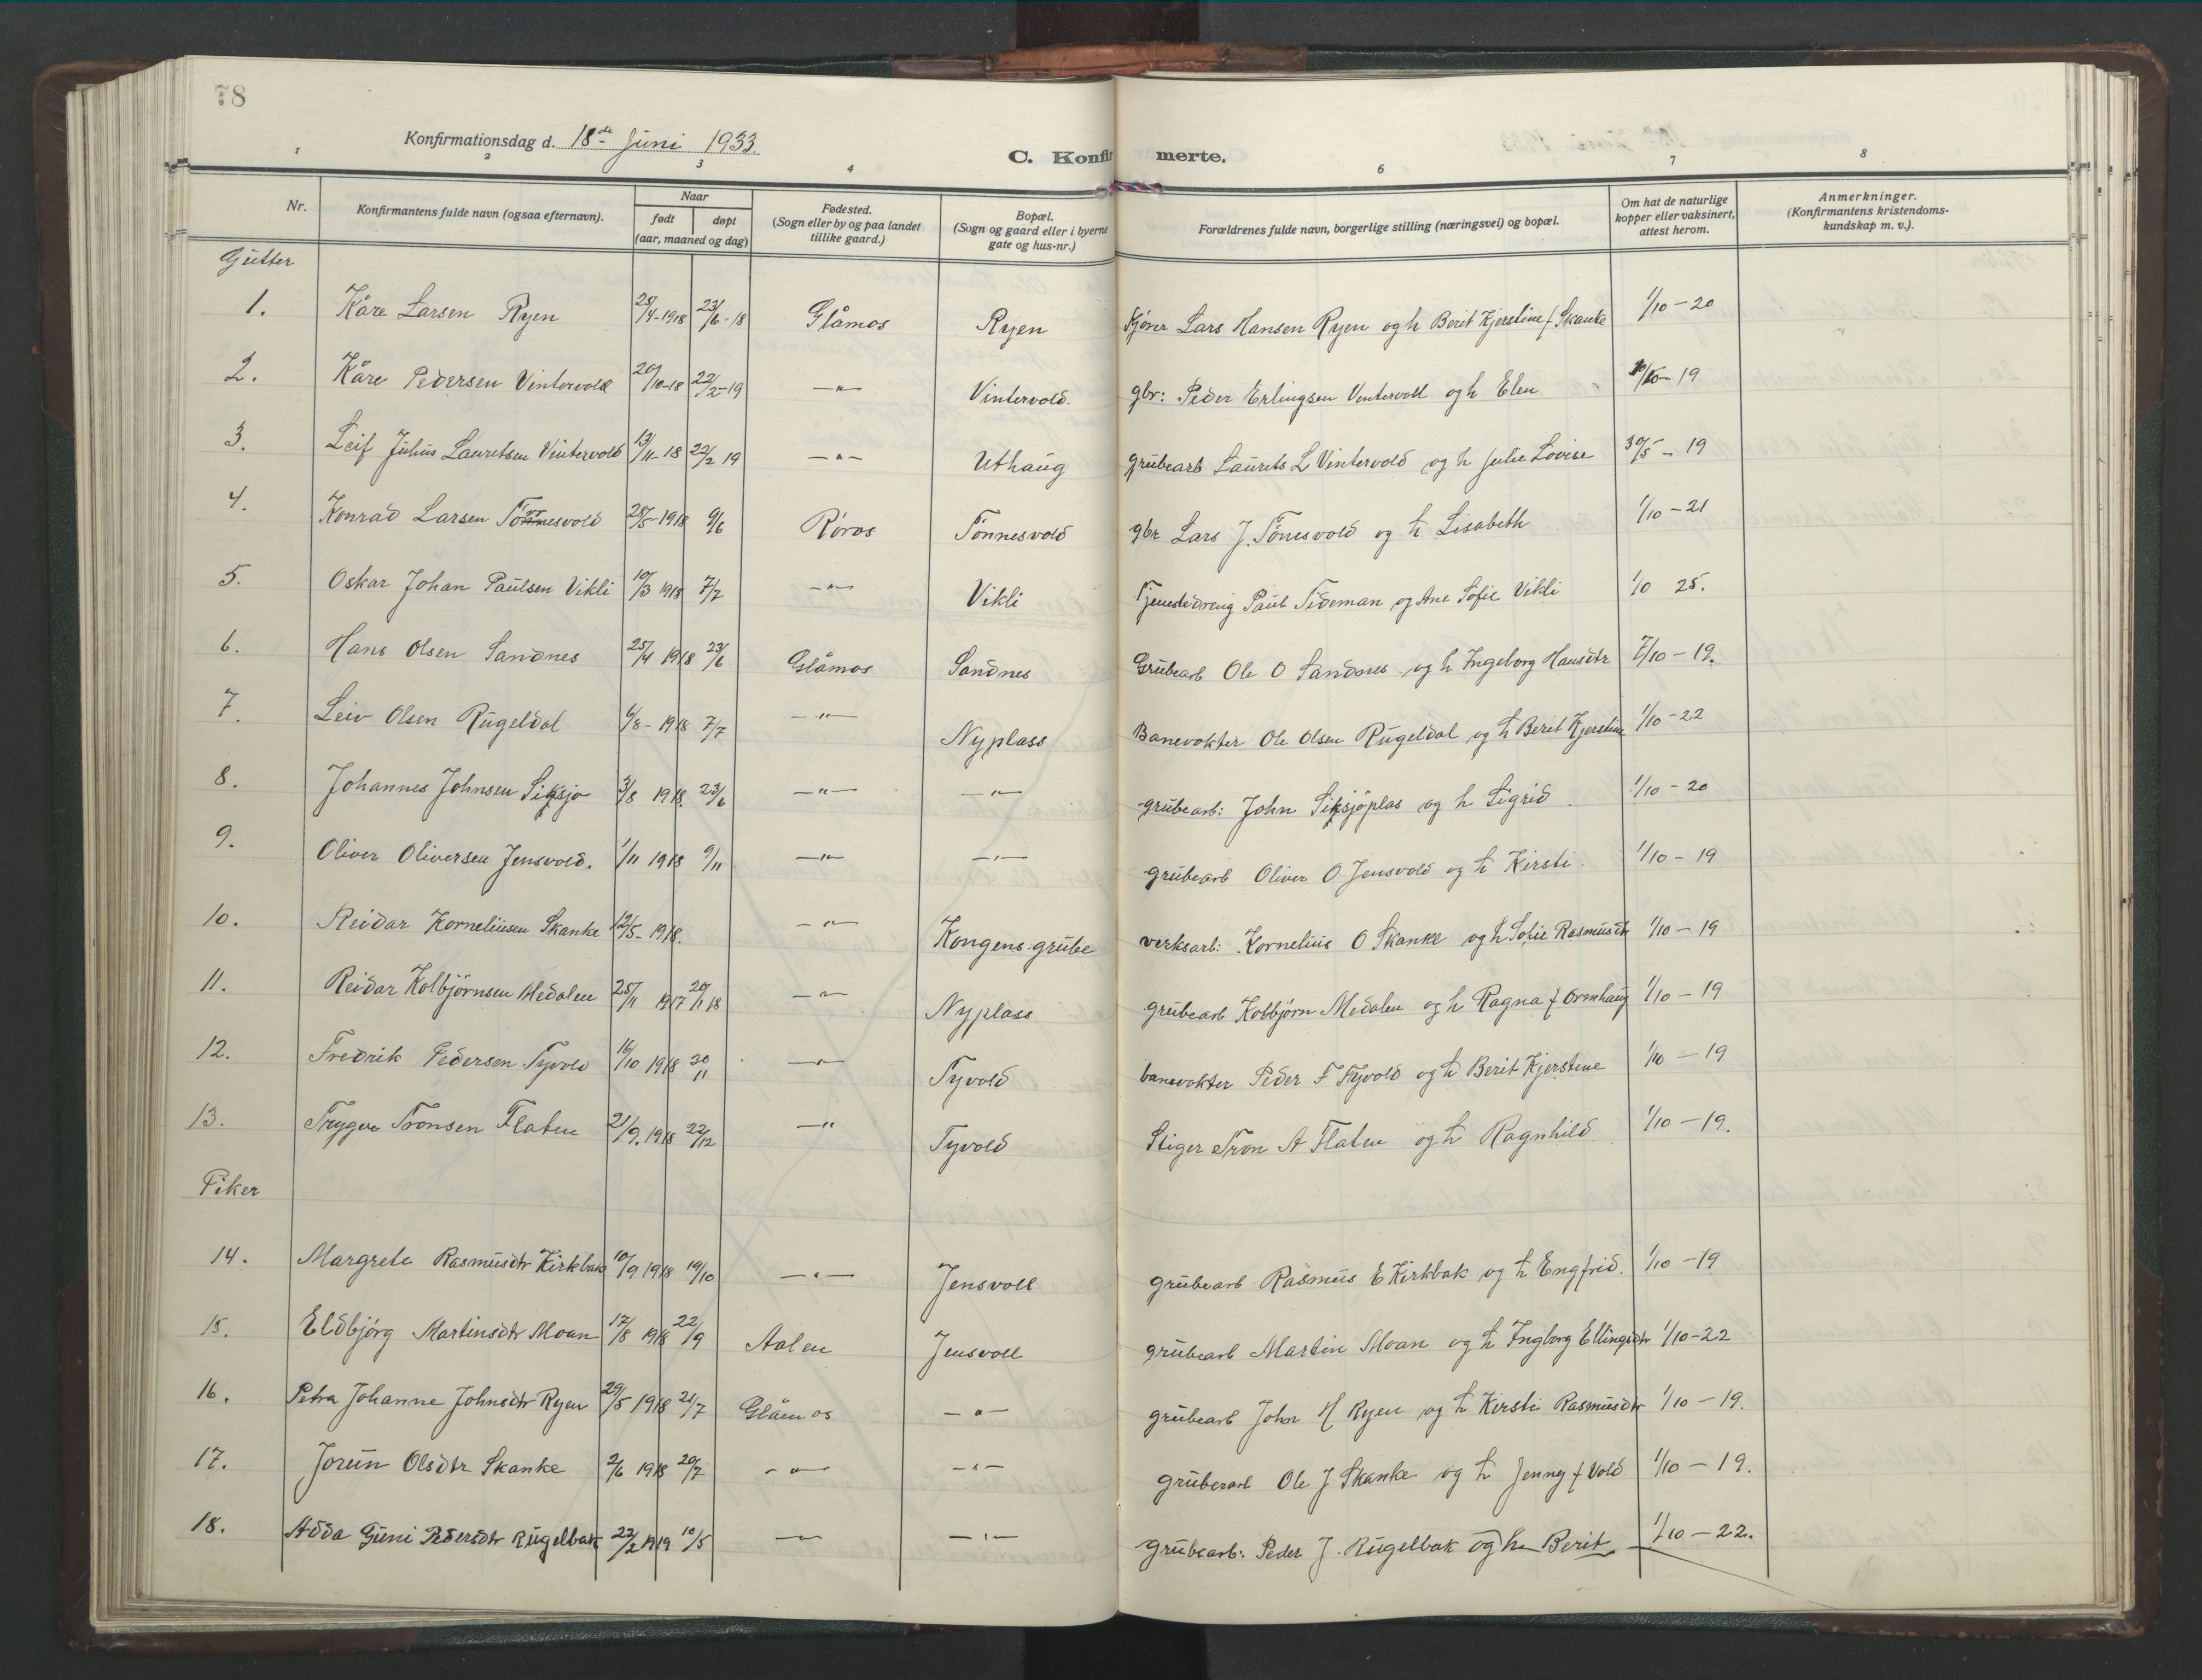 78
Konfirmationsdag d. 18de Juni 1933.
C. Konfirmerte.
1 2 3 4 6 7 8
Nr. Konfirmantens fulde navn (ogsaa efternavn). Naar født døpt (aar, maaned og dag) Fødested. (Sogn eller by og paa landet tillike gaard.) Bopæl. (Sogn og gaard eller i byerne gate og hus-nr.) Forældrenes fulde navn, borgerlige stilling (næringsvei) og bopæl. Om hat de naturlige kopper eller vaksinert, attest herom. Anmerkninger. (Konfirmantens kristendoms-kundskap m. v.).
Gutter
1. Kåre Larsen Ryen 25/4-1918 23/6-18 Glåmos Ryen Kjører Lars Hansen Ryen og h Berit Kjerstine f Skanke 1/10-20
2. Kåre Pedersen Vintervold 20/10-18 22/2-19 —"— Vintervold. gbr: Peder Erlingsen Vintervoll og h Elen 19
3. Leif Julius Lauritsen Vintervold 13/11-18 22/2 19 —"— Uthaug grubearb Laurits L Vintervold og h Julie Lovise 30/5-19
4. Konrad Larsen Tönnesvold 28/5-1918 9/6 Röros Tönnesvold gbr Lars J. Tönesvold og h Lisabeth 1/10-21
5. Oskar Johan Paulsen Vikli 10/3 1918 7/7 —"— Vikli Tjenestedreng Paul Tideman og Ane Sofie Vikli 1/0 25.
6. Hans Olsen Sandnes 25/4 1918 23/6 Glåmos Sandnes Grubearb Ole O Sandnes og h Ingeborg Hansdtr 7/10-19.
7. Leiv Olsen Rugeldal 6/8-1918 7/7 —"— Nyplass Banevokter Ole Olsen Rugeldal og h Berit Kjerstine 1/10-22
8. Johannes Johnsen Siksjø 3/8 1918. 23/6 —"— —"— grubearb: John Siksjöplas og h Sigrid. 1/10-20
9. Oliver Oliversen Jensvold. 1/11 1918 9/11 —"— —"— grubearb Oliver O Jensvold og h Kirsti. 1/10-19
10. Reidar Korneliusen Skanke 12/5-1918. —"— Kongens grube verksarb: Kornelius O Skanke og h Sofie Rasmusdtr 1/10-19
11. Reidar Kolbjörnsen Medalen 25/11 1917 20/1 18 —"— Nyplass grubearb Kolbjörn Medalen og h Ragna f Ormhaug 1/10-19
12. Fredrik Pedersen Tyvold 16/10 1918 30/11 —"— Tyvold banevokter Peder F Tyvold og h Berit Kjerstine 1/10-19
13. Trygve Tronsen Flaten 21/9. 1918 22/12 —"— Tyvold Stiger Tron A Flaten og h Ragnhild 1/10-19.
Piker
14. Margrete Rasmusdtr Kirkbak 10/9 1918 19/10 —"— Jensvoll grubearb Rasmus E Kirkbak og h Engfrid. 1/10-19
15. Eldbjörg Martinsdtr Moan 17/8 1918 22/9 Aalen Jensvoll grubearb Martin Moan og h Ingborg Ellingsdtr 1/10-22
16. Petra Johanne Johnsdtr Ryen 29/5 1918 21/7 Glåmos —"— grubearb John H Ryen og h Kirsti Rasmusdtr 1/10-19.
17. Jorun Olsdtr Skanke 2/6 1918 20/7 —"— —"— grubearb Ole J Skanke og h Jenny f Vold 1/10-19.
18. Adda Guni Pedersdtr Rugelbak 22/2 1919 10/5 —"— —"— grubearb: Peder J. Rugelbak og h Berit 1/10-22.